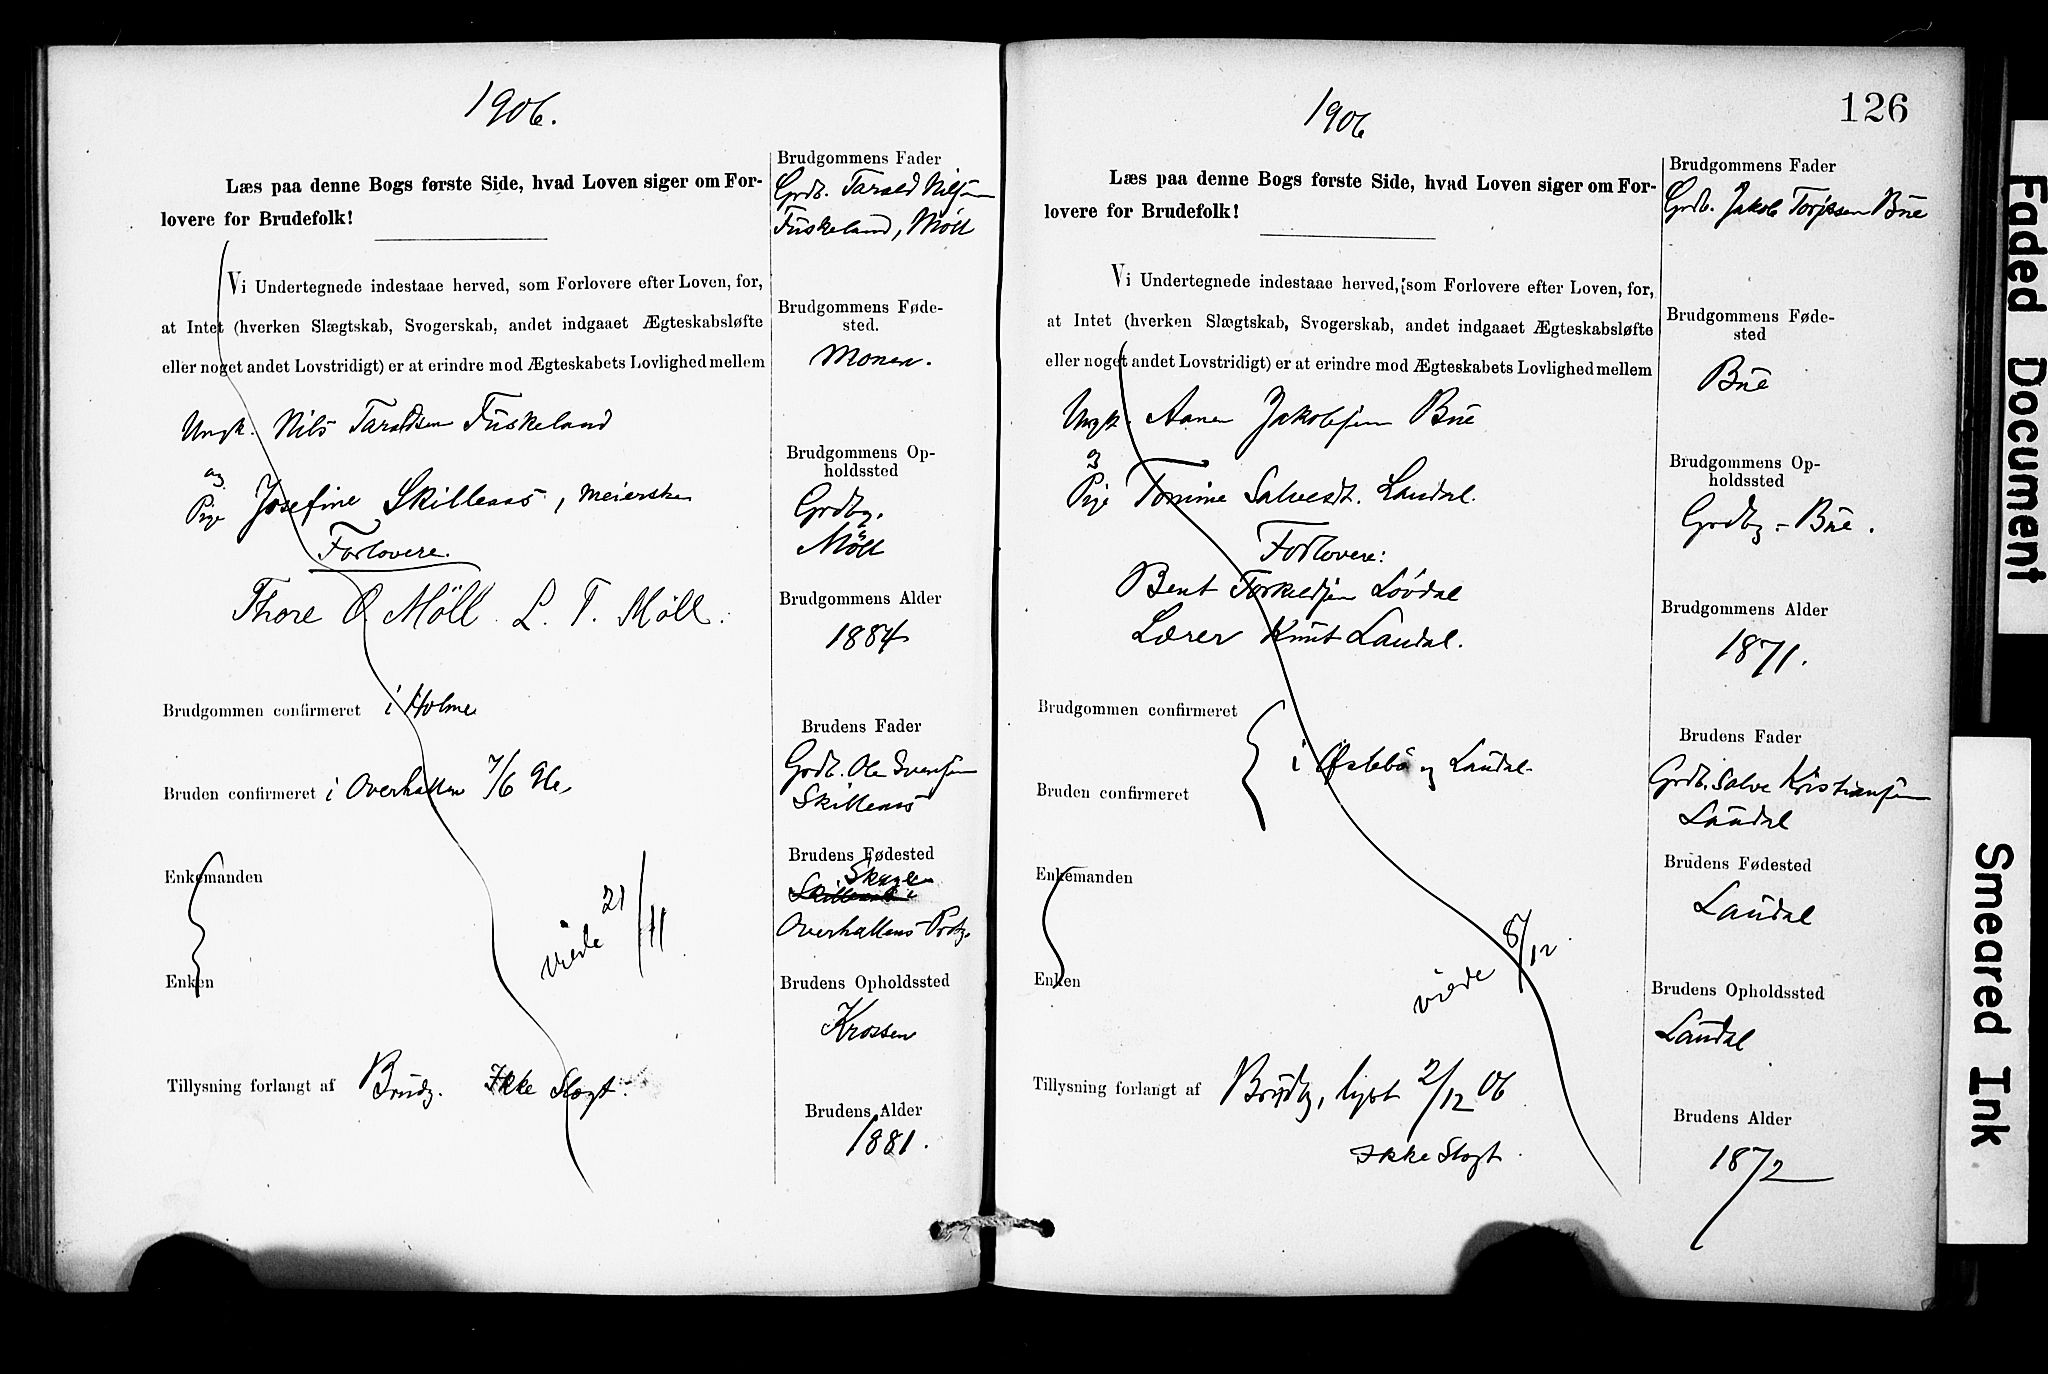 1906.
Læs paa denne Bogs første Side, hvad Loven siger om For-
lovere for Brudefolk!
Vi Undertegnede indestaae herved, som Forlovere efter Loven, for,
at Intet (hverken Slægtskab, Svogerskab, andet indgaaet Ægteskabsløfte
eller noget andet Lovstridigt) er at erindre mod Ægteskabets Lovlighed mellem
Ungk. Nils Taraldsen Fuskeland
og
Pige Josefine Skilleaas, meierske
Forlovere.
Thore O Möll. L. T. Möll.
Brudgommen confirmeret i Holme
Bruden confirmeret i Overhallen 7/6 96.
Enkemanden
viede 21/11
Enken
Tillysning forlangt af Brudg. Ikke Slægt.
Brudgommens Fader
Grdb. Tarald Nilsen
Fuskeland, Möll
Brudgommens Føde-
sted.
Monen.
Brudgommens Op-
holdssted
Grdbg.
Möll
Brudgommens Alder
1884
Brudens Fader
Grdb. Ole Svensen
Skilleaas
Brudens Fødested
Overhallens Prstg.
Brudens Opholdssted
Krossen
Brudens Alder
1881.
1906
126
Læs paa denne Bogs første Side, hvad Loven siger om For-
lovere for Brudefolk!
Vi Undertegnede indestaae herved, som Forlovere efter Loven, for,
at Intet (hverken Slægtskab, Svogerskab, andet indgaaet Ægteskabsløfte
eller noget andet Lovstridigt) er at erindre mod Ægteskabets Lovlighed mellem
Ungk. Aanen Jakobsen Bue
og
Pige Tomine Salvesdt. Laudal.
Forlovere:
Bent Torkelsen Lövdal
Lærer Knut Laudal.
Brudgommen confirmeret
i Øslebö og Laudal
Bruden confirmeret
Enkemanden
viede 8/12
Enken
Tillysning forlangt af Brudg, lyst 2/12 06
Ikke Slægt.
Brudgommens Fader
Grdb. Jakob Torjesen Bue
Brudgommens Føde-
sted
Bue
Brudgommens Op-
holdssted
Grdbg - Bue.
Brudgommens Alder
1871.
Brudens Fader
Grdb. Salve Kristiansen
Laudal
Brudens Fødested
Laudal
Brudens Opholdssted
Laudal
Brudens Alder
1872
Faded Document
Smeared Ink